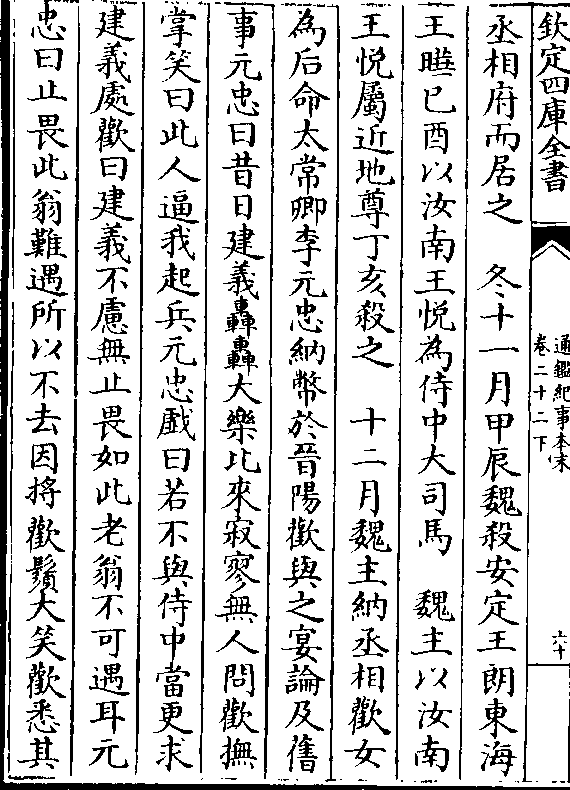 欽定四庫全書
通鑑紀事本末
卷二十二下
六十
丞相府而居之　冬十一月甲辰魏殺安定王朗東海
王曄已酉以汝南王悦為侍中大司馬　魏主以汝南
王悦屬近地尊丁亥殺之　十二月魏主納丞相歡女
為后命太常卿李元忠納幣於晉陽歡與之宴論及舊
事元忠曰昔日建義轟轟大樂比來寂寥無人問歡撫
掌笑曰此人逼我起兵元忠戲曰若不與侍中當更求
建義處歡曰建義不慮無止畏如此老翁不可遇耳元
忠曰止畏此翁難遇所以不去因捋歡鬚大笑歡悉其